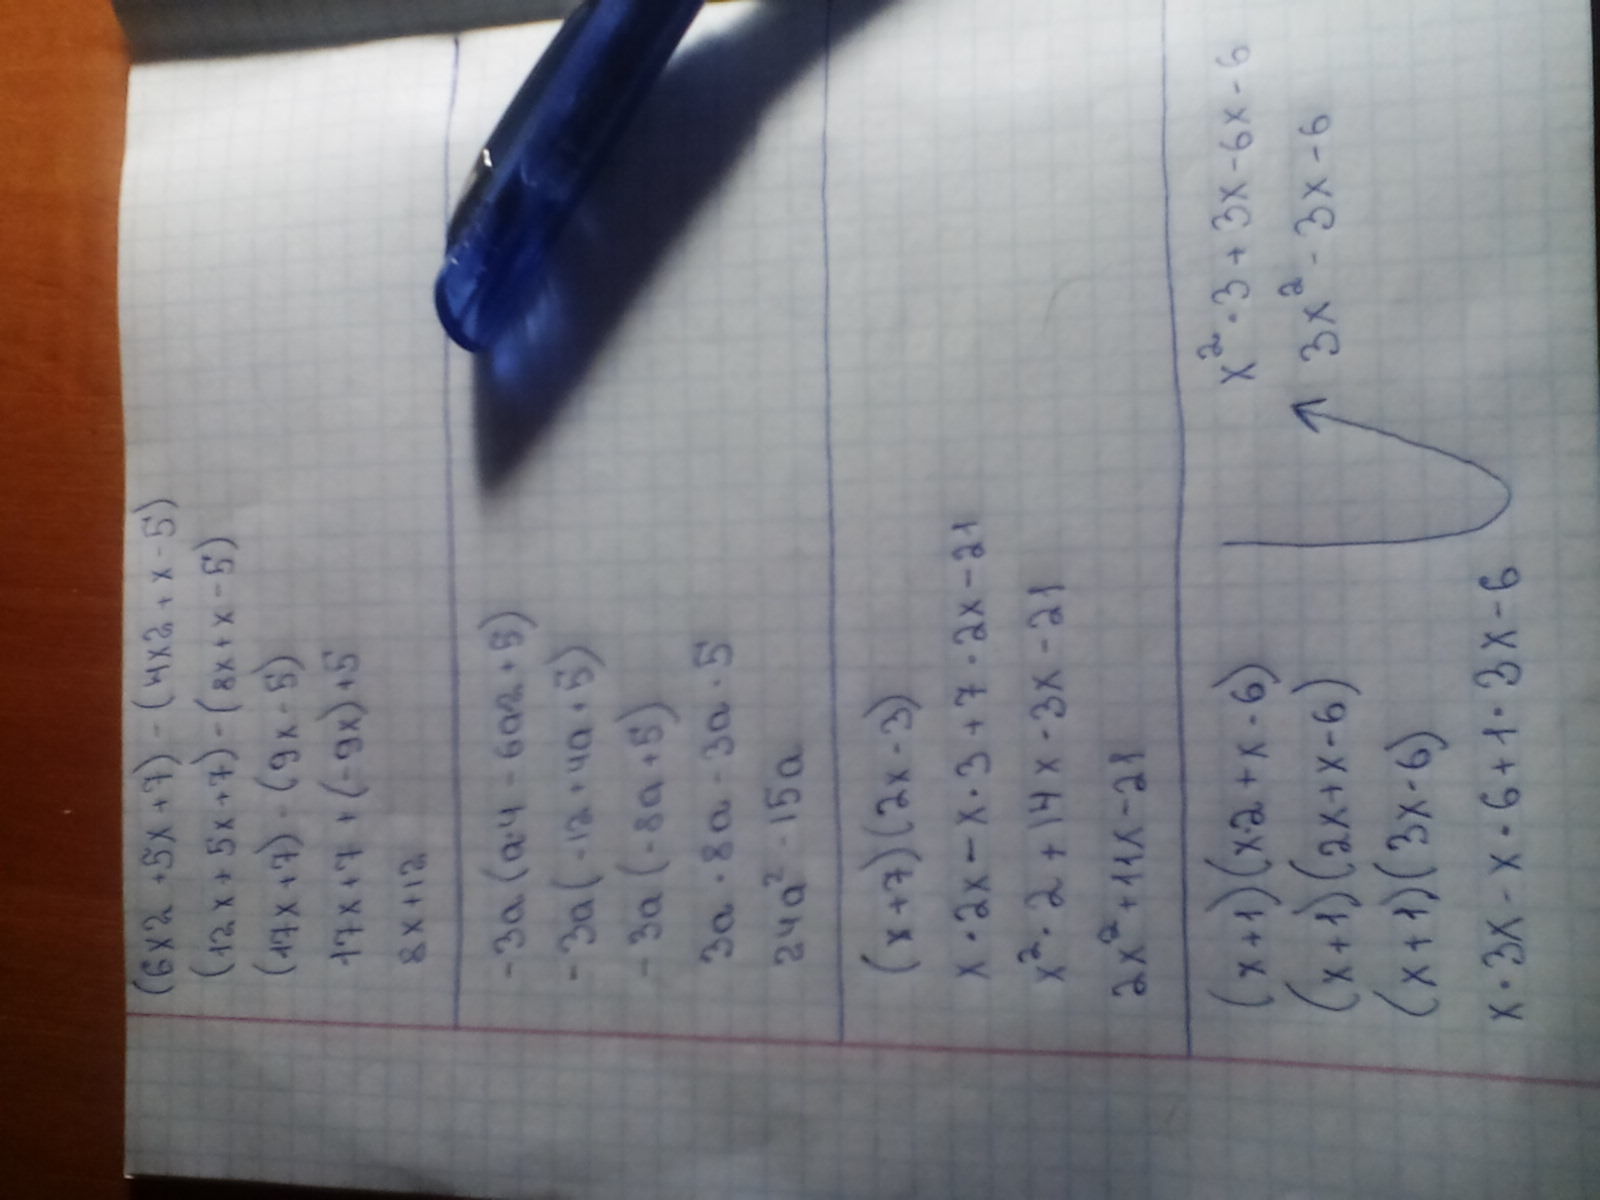 (6x2 +5x+7) - (4x2 + x - 5)
(12x + 5x+7) - (8x + x - 5)
(17x+7) - (9x - 5)
17x+7 + (-9x)+5
8x+12
-3a(a4 - 6a2 + 5)
-3a(-12a+4a+5)
-3a(-8a+5)
3a · 8a - 3a · 5
24a² - 15a
(x+7)(2x-3)
x · 2x - x · 3 + 7 · 2x - 21
x² · 2 + 14x - 3x - 21
2x² + 11x - 21
(x+1)(x·2+x-6)
(x+1)(2x+x-6)
(x+1)(3x-6)
x · 3x - x · 6 + 1 · 3x - 6
x² · 3 + 3x - 6x - 6
3x² - 3x - 6